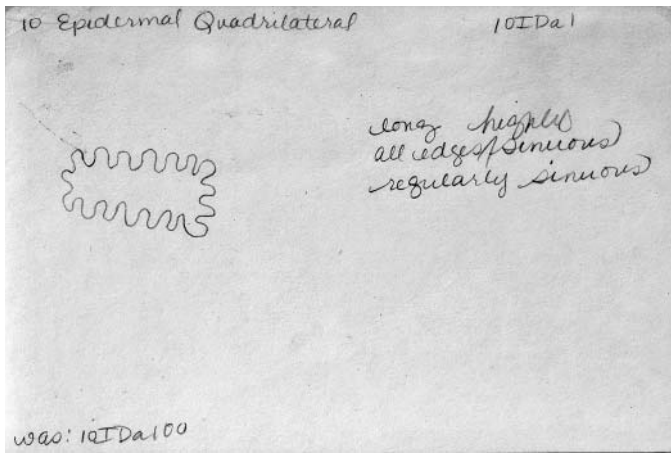 10 Epidermal Quadrilateral
10IDa1
long highly
all edges/sinuous
regularly sinuous
was: 10IDa100